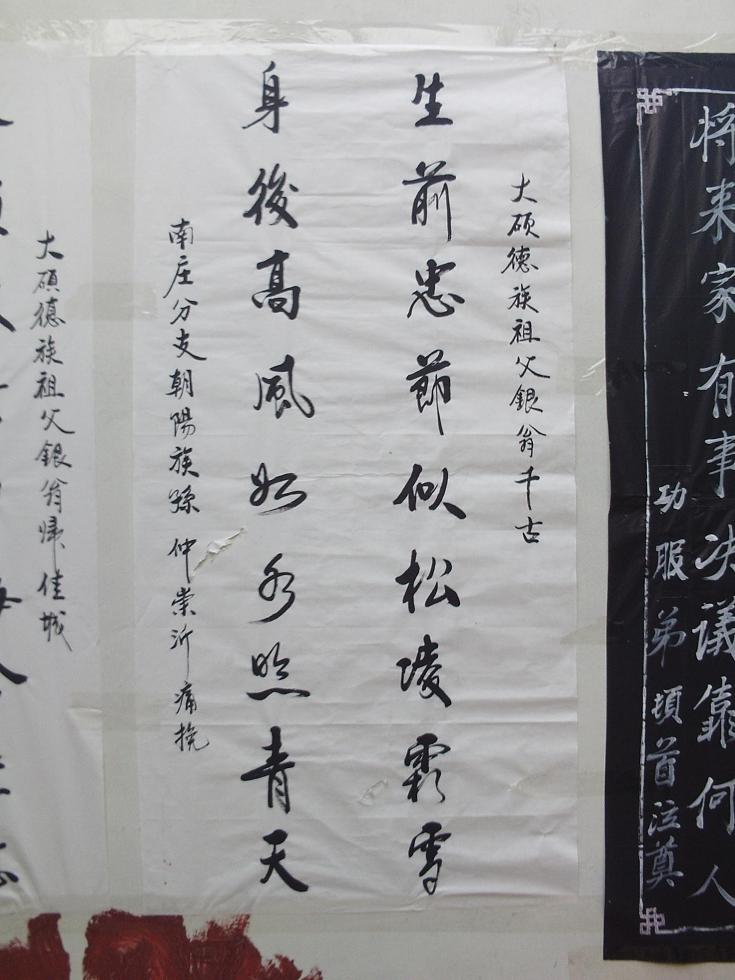 将来家有事决议靠何人
功服弟頓首泣奠
大硕德族祖父銀翁千古
生前忠節似松凌霜雪
身後高風如水照青天
南庄分支朝陽族孫仲崇沂痛挽
大碩德族祖父銀翁歸佳城